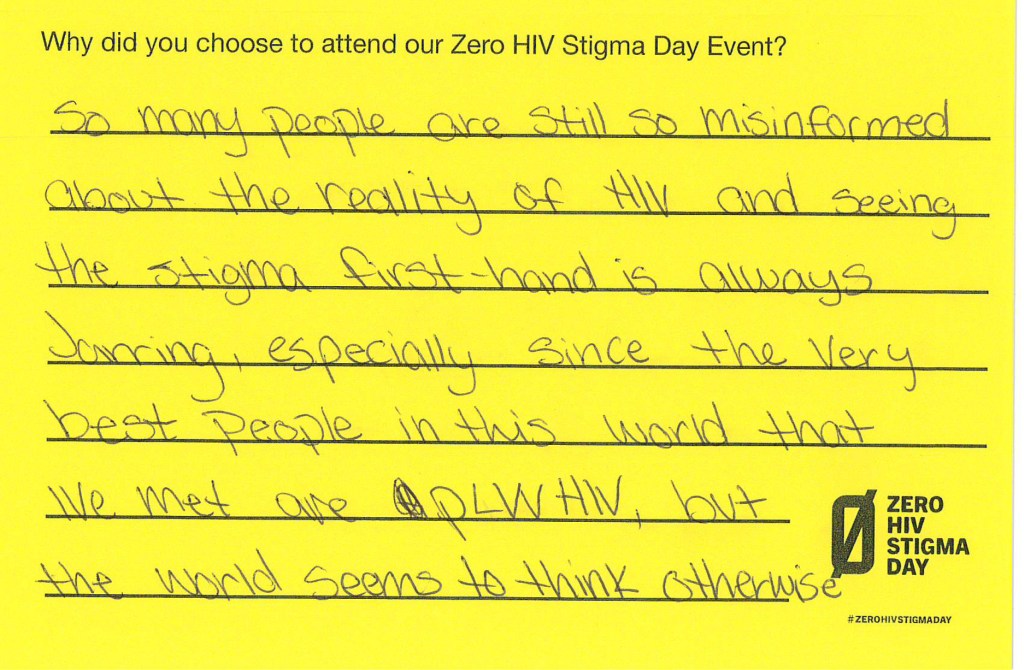 Why did you choose to attend our Zero HIV Stigma Day Event?
So many people are still so misinformed
about the reality of HIV and seeing
the stigma first-hand is always
Jarring, especially since the very
best people in this world that
I've met are PLWHIV, but
the world seems to think otherwise
ZERO
HIV
STIGMA
DAY
#ZEROHIVSTIGMADAY